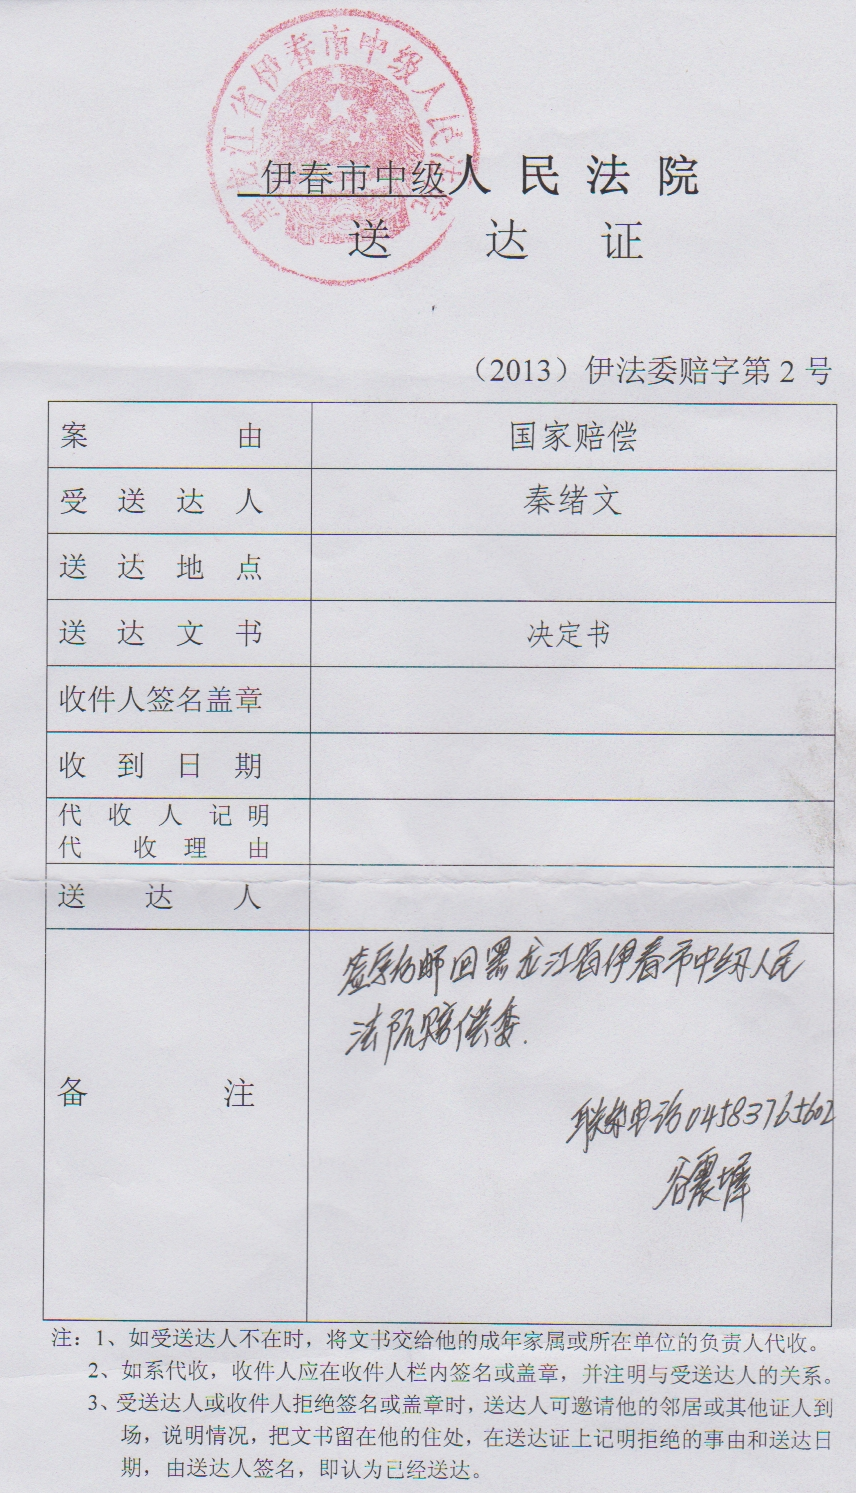 黑龙江省伊春市中级人民法院
伊春市中级人民法院
送达证
（2013）伊法委赔字第2号
案由 国家赔偿
受送达人 秦绪文
送达地点
送达文书 决定书
收件人签名盖章
收到日期
代收人记明
代收理由
送达人
签字后邮回黑龙江省伊春市中级人民
法院赔偿委.
备注
联系电话04583765602
谷震
注：1、如受送达人不在时，将文书交给他的成年家属或所在单位的负责人代收。
2、如系代收，收件人应在收件人栏内签名或盖章，并注明与受送达人的关系。
3、受送达人或收件人拒绝签名或盖章时，送达人可邀请他的邻居或其他证人到
场，说明情况，把文书留在他的住处，在送达证上记明拒绝的事由和送达日
期，由送达人签名，即认为已经送达。